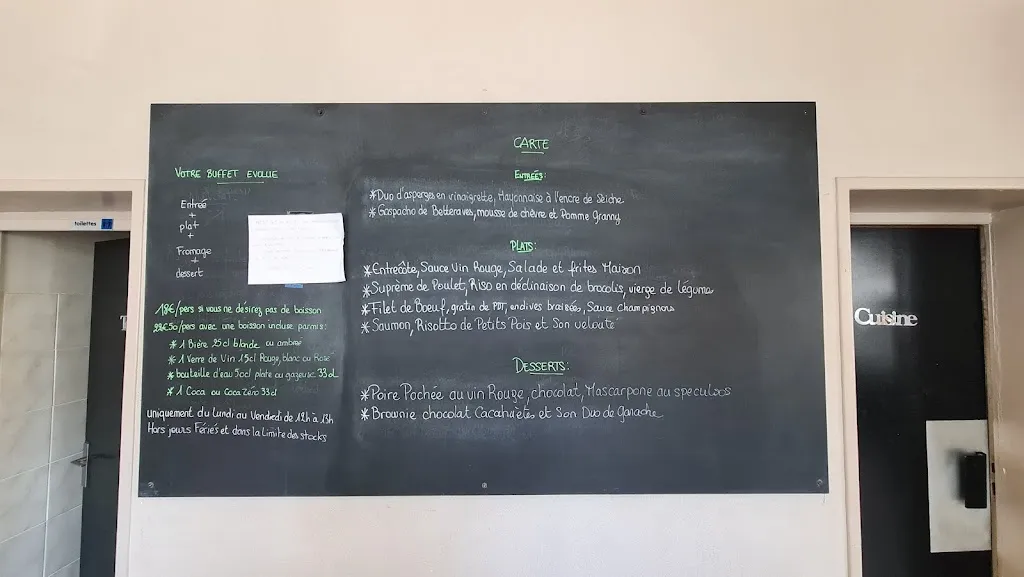 toilettes
VOTRE BUFFET EVOLUE
Entrée
+
plat
+
Fromage
+
dessert
18€/pers si vous ne désirez pas de boisson
22€50/pers avec une boisson incluse parmis:
* 1 Bière 25cl blonde ou ambrée
* 1 Verre de Vin 15cl Rouge, blanc ou Rosé
* bouteille d'eau 50cl plate ou gazeuse 33cl
* 1 Coca ou Coca Zéro 33cl
uniquement du Lundi au Vendredi de 12h à 13h
Hors jours Fériés et dans la limite des stocks
CARTE
ENTRÉES:
*Duo d'asperges en vinaigrette, Mayonnaise à l'encre de Sèiche
*Gaspacho de Betteraves, mousse de chèvre et Pomme Granny
PLATS:
*Entrecôte, Sauce Vin Rouge, Salade et frites Maison
*Suprême de Poulet, Riso en déclinaison de brocolis, vierge de légume
*Filet de Boeuf, gratin de PDT, endives braisées, Sauce Champignons
*Saumon, Risotto de Petits Pois et Son velouté
DESSERTS:
*Poire Pochée au vin Rouge, chocolat, Mascarpone au speculoos
*Brownie chocolat Cacahuètes et Son Duo de Ganache
Cuisine